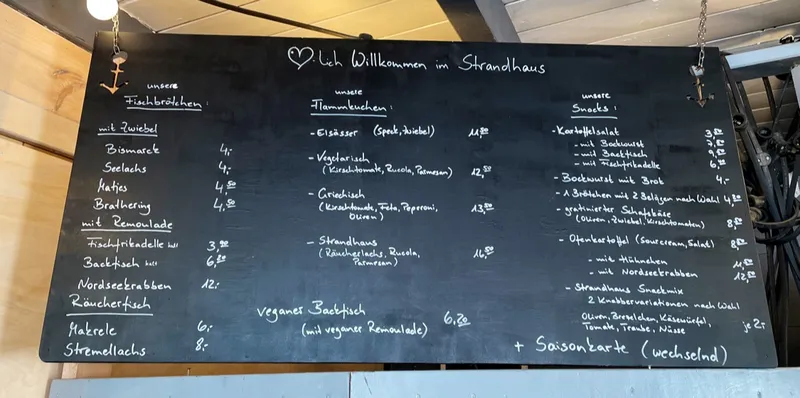 ♡-lich Willkommen im Strandhaus
unsere
Fischbrötchen:
mit Zwiebel
Bismarck 4,-
Seelachs 4,-
Matjes 4,50
Brathering 4,50
mit Remoulade
Fischfrikadelle 3,90
Backfisch 6,20
Nordseekrabben 12,-
Räucherfisch
Makrele 6,-
Stremellachs 8,-
unsere
Flammkuchen:
- Elsässer (Speck, Zwiebel)
- Vegetarisch 12,50
(Kirschtomate, Rucola, Parmesan)
- Griechisch 13,50
(Kirschtomate, Feta, Peperoni,
Oliven)
- Strandhaus
(Räucherlachs, Rucola,
Parmesan)
veganer Backfisch 6,20
(mit veganer Remoulade)
unsere
Snacks:
- Kartoffelsalat
- mit Bockwurst
- mit Backfisch
- mit Fischfrikadelle
- Bockwurst mit Brot 4,-
- 1 Brötchen mit 2 Belägen nach Wahl
- gratinierter Schafskäse 8,50
(Oliven, Zwiebel, Kirschtomaten)
- Ofenkartoffel (Sourcream, Salat)
- mit Hühnchen
- mit Nordseekrabben
- Strandhaus Snackmix
2 Knabbervariationen nach Wahl
Oliven, Brezelchen, Käsewürfel, je 2,-
Tomate, Traube, Nüsse
+ Saisonkarte (wechselnd)